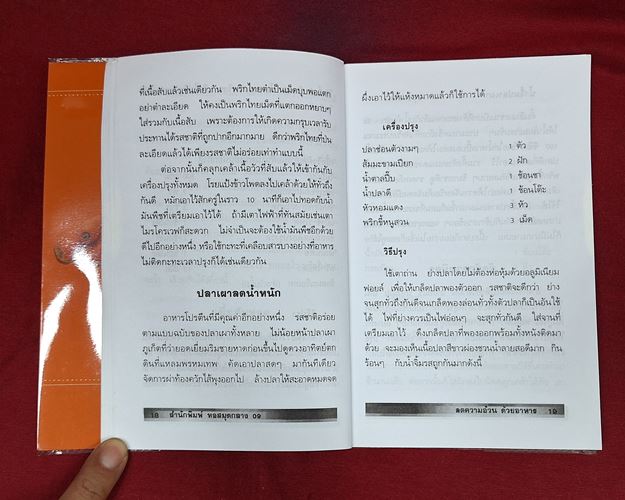 ที่เนื้อสับแล้วเช่นเดียวกัน พริกไทยตำเป็นเม็ดบุบพอแตก
อย่าตำละเอียด ให้คงเป็นพริกไทยเม็ดที่แตกออกหยาบๆ
ใส่รวมกับเนื้อสับ เพราะต้องการให้เกิดความกรุบเวลารับ
ประทานได้รสชาติที่ถูกปากอีกมากมาย ดีกว่าพริกไทยที่ป่น
ละเอียดแล้วได้เพียงรสชาติไม่อร่อยเท่าทำแบบนี้
ต่อจากนั้นก็คลุกเคล้าเนื้อวัวที่สับแล้วให้เข้ากันกับ
เครื่องปรุงทั้งหมด โรยแป้งข้าวโพดลงไปเคล้าด้วยให้ทั่วถึง
กันดี หมักเอาไว้สักครู่ในราว 10 นาทีก็เอาไปทอดกับน้ำ
มันพืชที่เตรียมเอาไว้ได้ ถ้ามีเตาไฟฟ้าที่ทันสมัยเช่นเตา
ไมรโครเวฟก็สะดวก ไม่จำเป็นจะต้องใช้น้ำมันพืชอีกด้วย
ดีไปอีกอย่างหนึ่ง หรือใช้กะทะที่เคลือบสารบางอย่างที่อาหาร
ไม่ติดกะทะเวลาปรุงก็ได้เช่นเดียวกัน
ปลาเผาลดน้ำหนัก
อาหารโปรตีนที่มีคุณค่าอีกอย่างหนึ่ง รสชาติอร่อย
ตามแบบฉบับของปลาเผาทั้งหลาย ไม่น้อยหน้าปลาเผา
ภูเก็ตที่ว่ายอดเยี่ยมริมชายหาดก่อนขึ้นไปดูดวงอาทิตย์ตก
ดินที่แหลมพรหมเทพ คัดเอาปลาสดๆ มากันทีเดียว
จัดการผ่าท้องควักไส้พุงออกไป ล้างปลาให้สะอาดหมดจด
18 สำนักพิมพ์ หอสมุดกลาง 09
ผึ่งเอาไว้ให้แห้งหมาดแล้วก็ใช้การได้
เครื่องปรุง
ปลาช่อนตัวงามๆ 1 ตัว
ส้มมะขามเปียก 2 ฝัก
น้ำตาลปี๊บ 1 ช้อนชา
น้ำปลาดี 1 ช้อนโต๊ะ
หัวหอมแดง 3 หัว
พริกขี้หนูสวน 3 เม็ด
วิธีปรุง
ใช้เตาถ่าน ย่างปลาโดยไม่ต้องห่อหุ้มด้วยอลูมิเนียม
ฟอยล์ เพื่อให้เกล็ดปลาพองตัวออก รสชาติจะดีกว่า ย่าง
จนสุกทั่วถึงกันดีจนเกล็ดพองล่อนทั่วทั้งตัวปลาก็เป็นอันใช้
ได้ ไฟที่ย่างควรเป็นไฟอ่อนๆ จะสุกทั่วกันดี ใส่จานที่
เตรียมเอาไว้ ดึงเกล็ดปลาที่พองออกพร้อมทั้งหนังติดมา
ด้วย จะมองเห็นเนื้อปลาสีขาวผ่องชวนน้ำลายสอดีมาก กิน
ร้อนๆ กับน้ำจิ้มรสถูกกันมากดังนี้
ลดความอ้วน ด้วยอาหาร 19